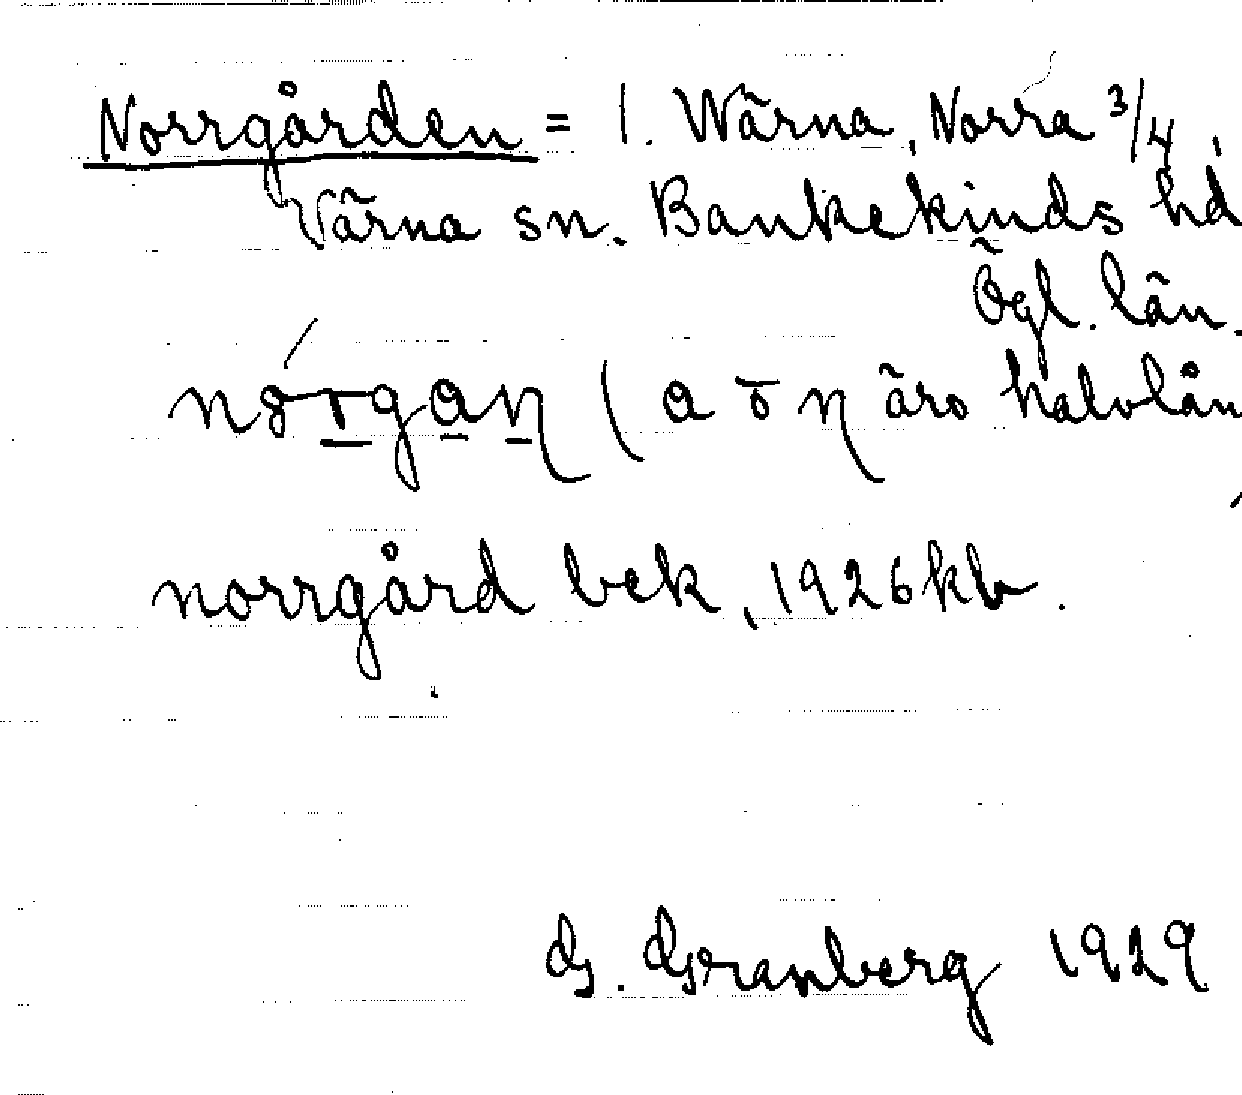 Norrgården = 1. Wärna, Norra 3/4,
Värna sn. Bankekinds hd
Ögl. län.
äro halvlån
norrgård bek, 1926 kb.
G. Granberg 1929